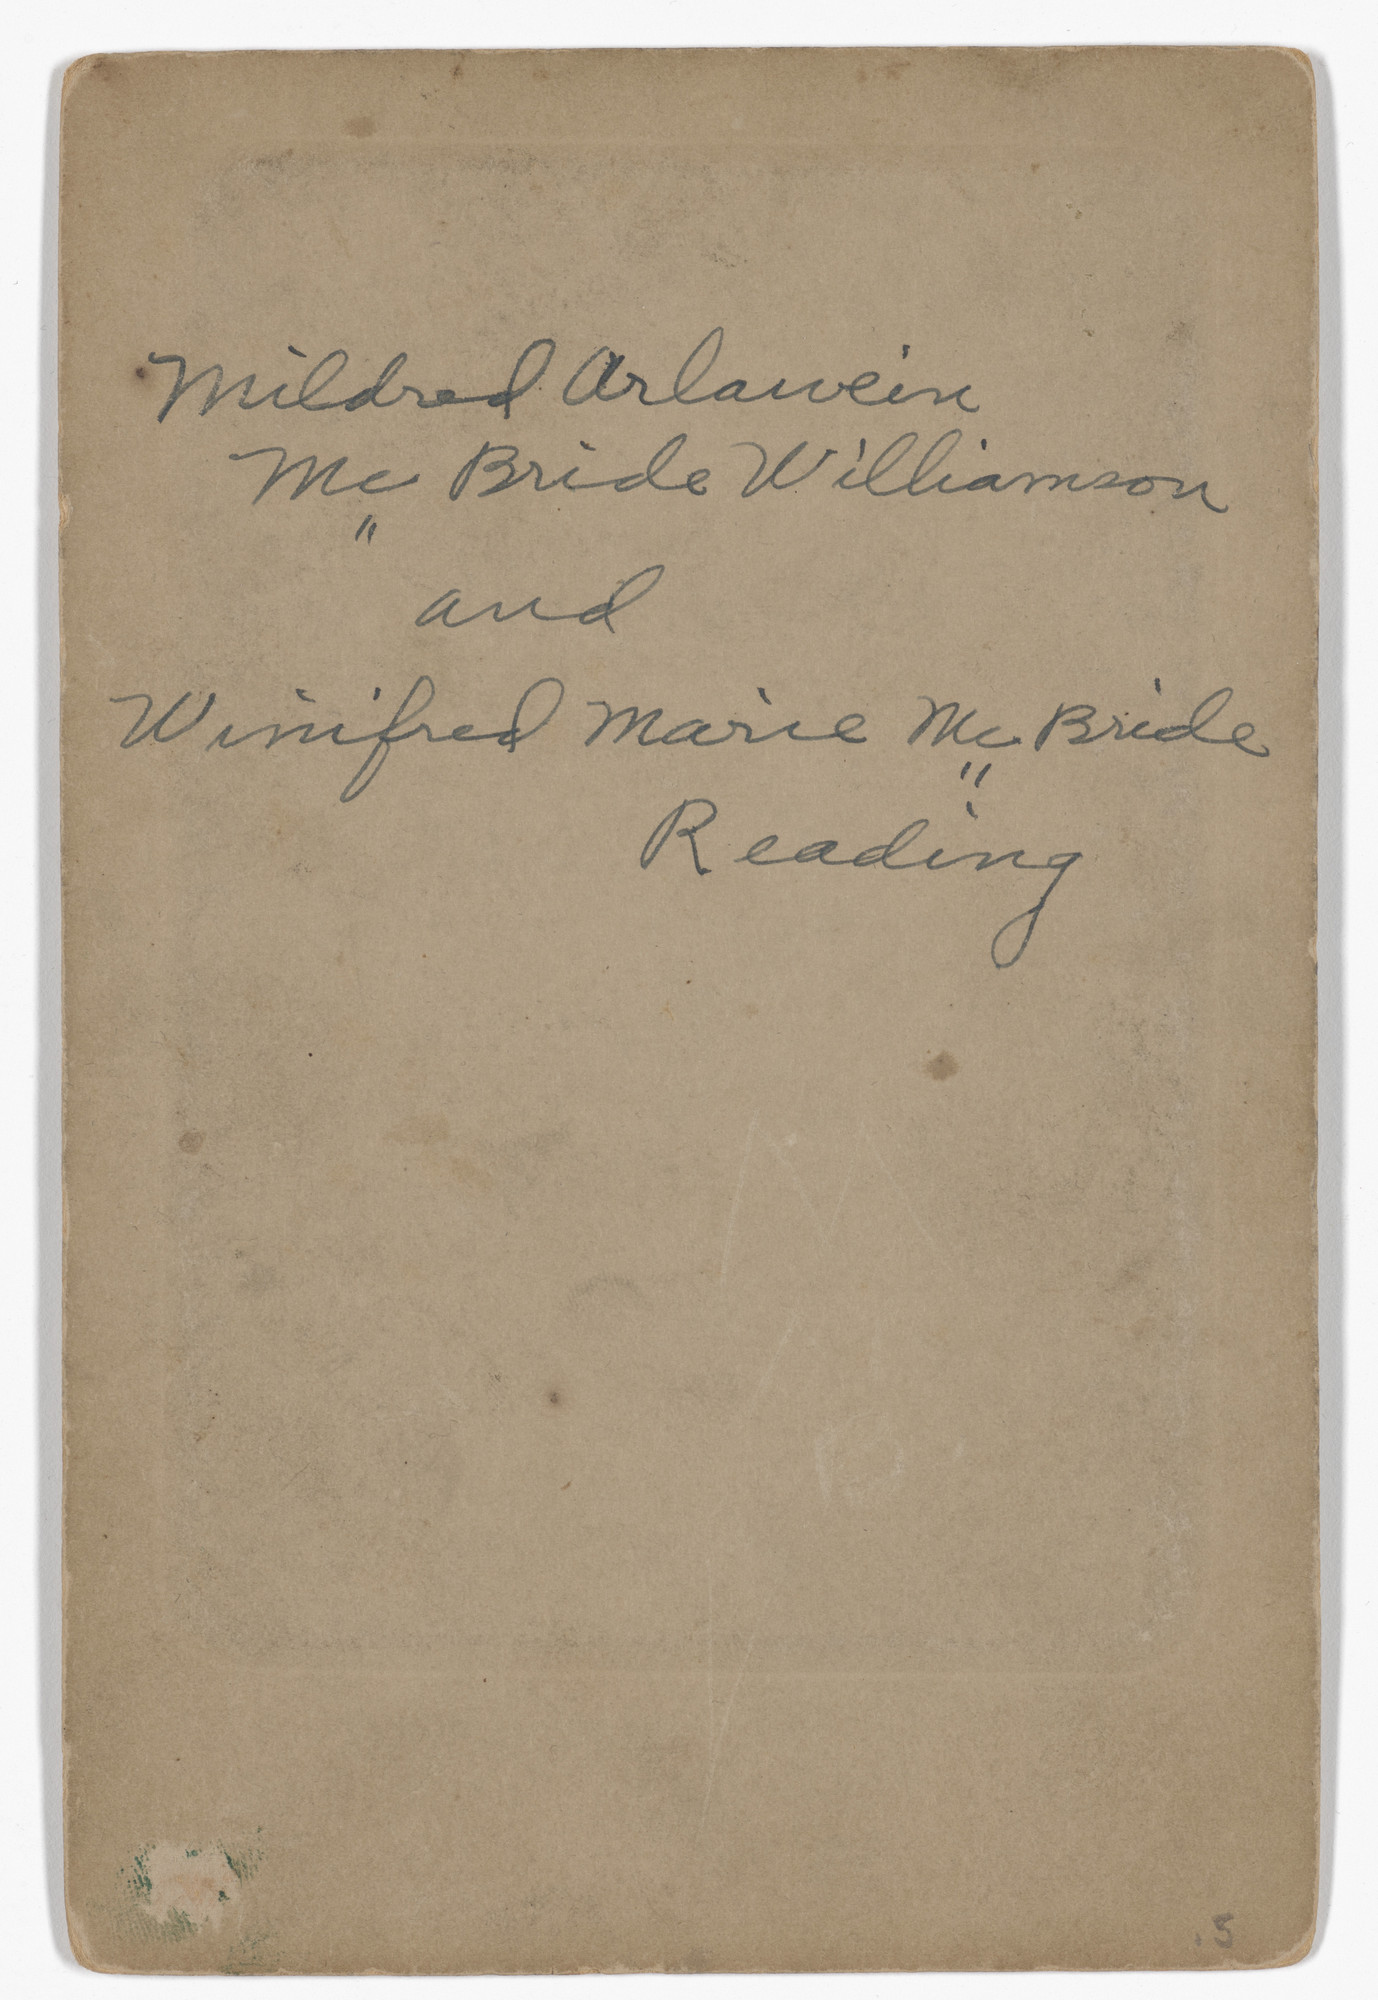 Mildred Arlawein
Mc Bride Williamson
"
and
Winifred Marie Mc Bride
"
Reading
.5